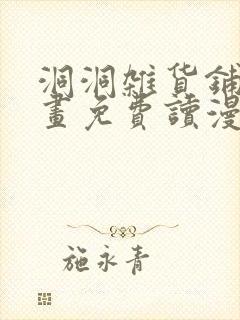 洞洞雜貨鋪
畫免費讀漫
施永青